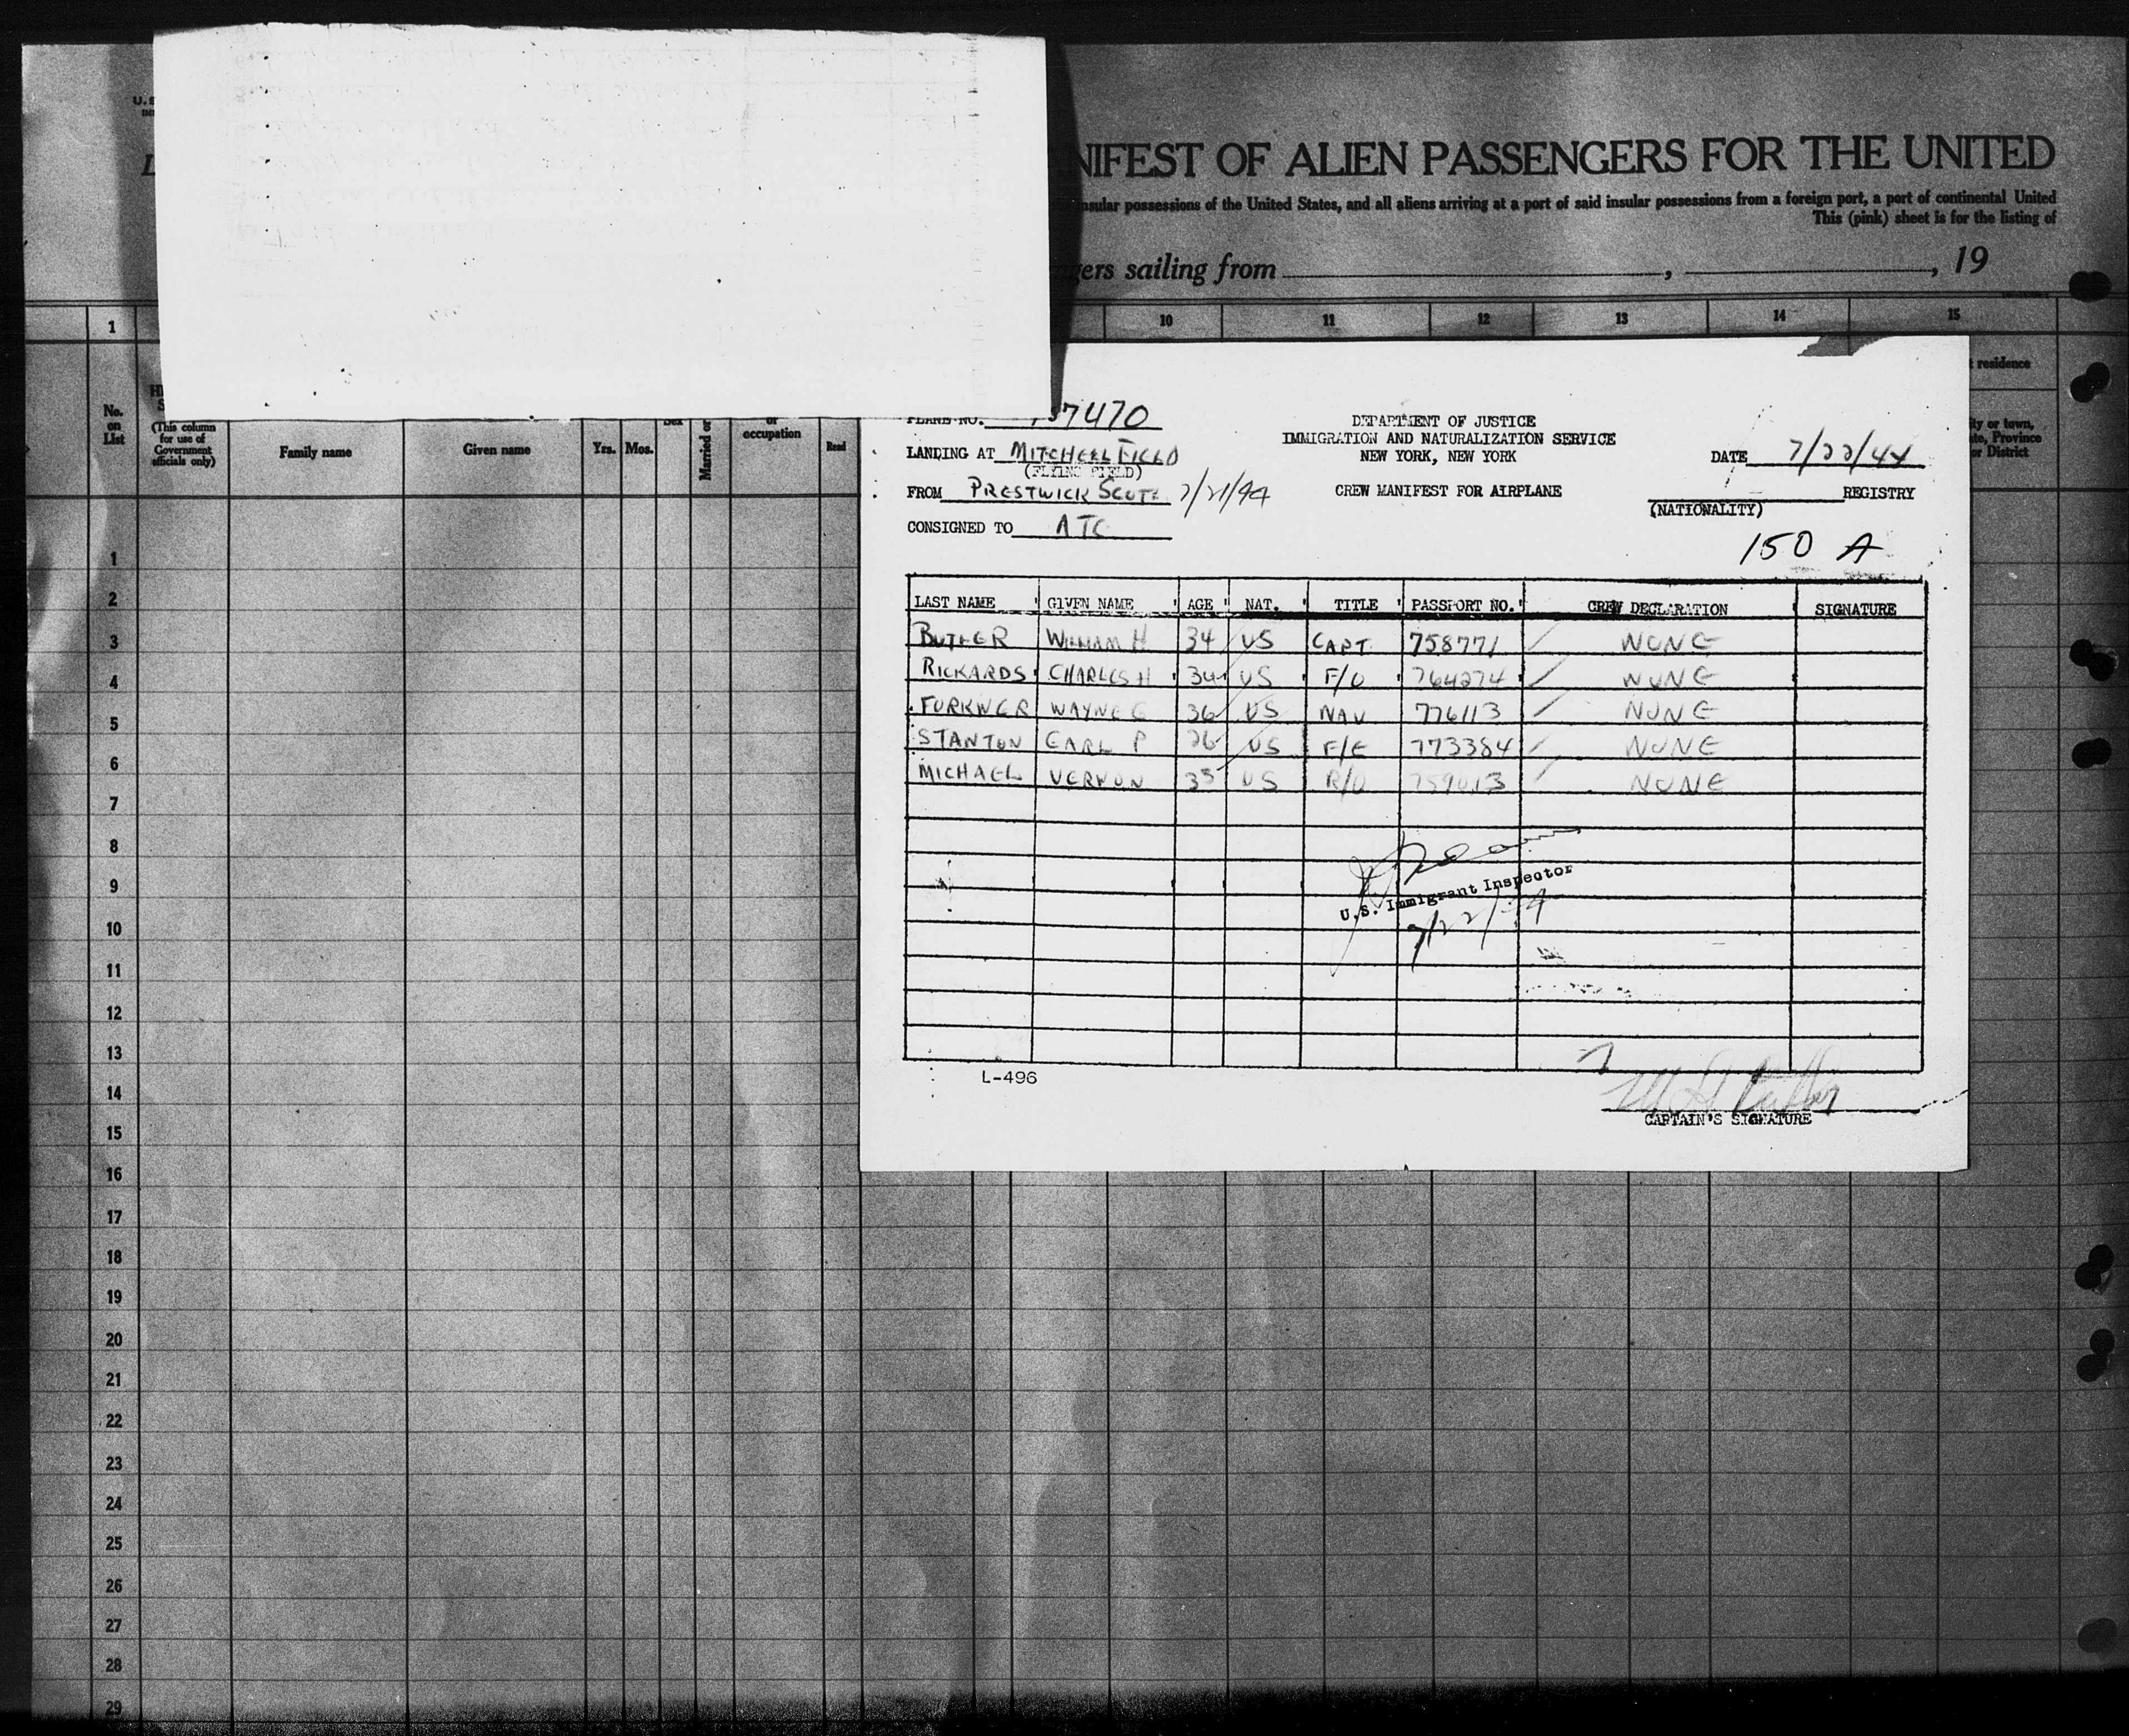 U.S
L
NIFEST OF ALIEN PASSENGERS FOR THE UNITED
nsular possessions of the United States, and all aliens arriving at a port of said insular possessions from a foreign port, a port of continental United
This (pink) sheet is for the listing of
gers sailing from , , 19
1 10 11 12 13 14 15
residence
No. on List
(This column for use of Government officials only)
Family name
Given name
Yrs. Mos.
Sex
Married or
or occupation
Read
ity or town,
te, Province
or District
PLANE NO. 37470
LANDING AT MITCHELL FIELD
(FLYING FIELD)
FROM PRESTWICK SCOT. 7/21/44
CONSIGNED TO ATC
DEPARTMENT OF JUSTICE
IMMIGRATION AND NATURALIZATION SERVICE
NEW YORK, NEW YORK
CREW MANIFEST FOR AIRPLANE
DATE 7/22/44
REGISTRY
(NATIONALITY)
150 A
LAST NAME GIVEN NAME AGE NAT. TITLE PASSPORT NO. CREW DECLARATION SIGNATURE
BUTLER WILLIAM H 34 US CAPT 758771 NONE
RICKARDS CHARLES H 34 US F/O 764274 NONE
FORKNER WAYNE E 36 US NAV 776113 NONE
STANTON EARL P 26 US F/E 773384 NONE
MICHAEL VERNON 35 US R/O NONE
U.S. Immigrant Inspector
7/22/44
L-496
W H Butler
CAPTAIN'S SIGNATURE
1
2
3
4
5
6
7
8
9
10
11
12
13
14
15
16
17
18
19
20
21
22
23
24
25
26
27
28
29